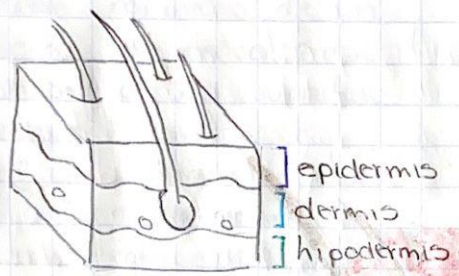 epidermis
dermis
hipodermis